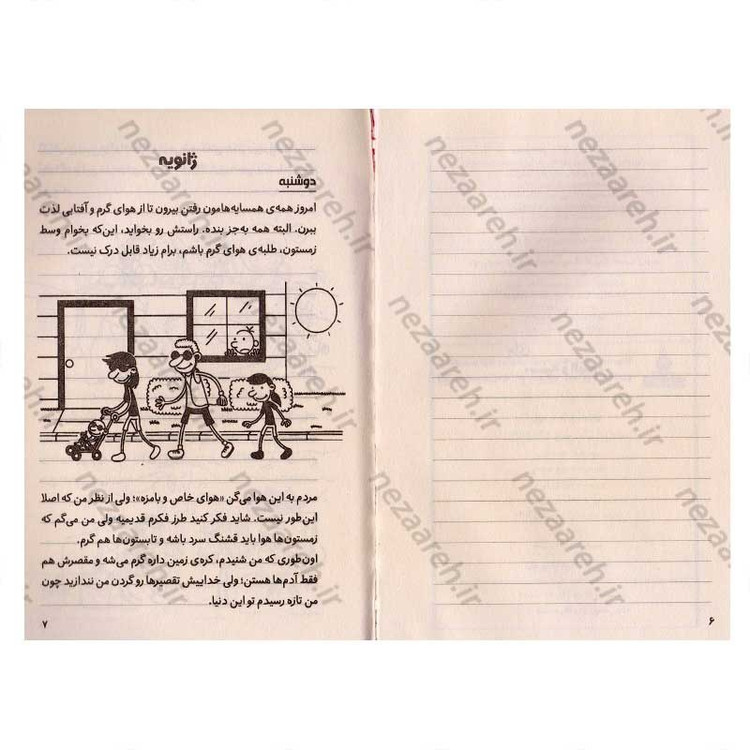 ژانویه
دوشنبه
امروز همه‌ی همسایه‌هامون رفتن بیرون تا از هوای گرم و آفتابی لذت
ببرن. البته همه به‌جز بنده. راستش رو بخواید، این‌که بخوام وسط
زمستون، طلبه‌ی هوای گرم باشم، برام زیاد قابل درک نیست.
مردم به این هوا می‌گن «هوای خاص و بامزه»؛ ولی از نظر من که اصلا
این‌طور نیست. شاید فکر کنید طرز فکرم قدیمیه ولی من می‌گم که
زمستون‌ها هوا باید قشنگ سرد باشه و تابستون‌ها هم گرم.
اون‌طوری که من شنیدم، کره‌ی زمین داره گرم می‌شه و مقصرش هم
فقط آدم‌ها هستن؛ ولی خداییش تقصیرها رو گردن من نندازید چون
من تازه رسیدم تو این دنیا.
۷
۶
nezaareh.ir
nezaareh.ir
nezaareh.ir
nezaareh.ir
nezaareh.ir
nezaareh.ir
nezaareh.ir
nezaareh.ir
nezaareh.ir
nezaareh.ir
nezaareh.ir